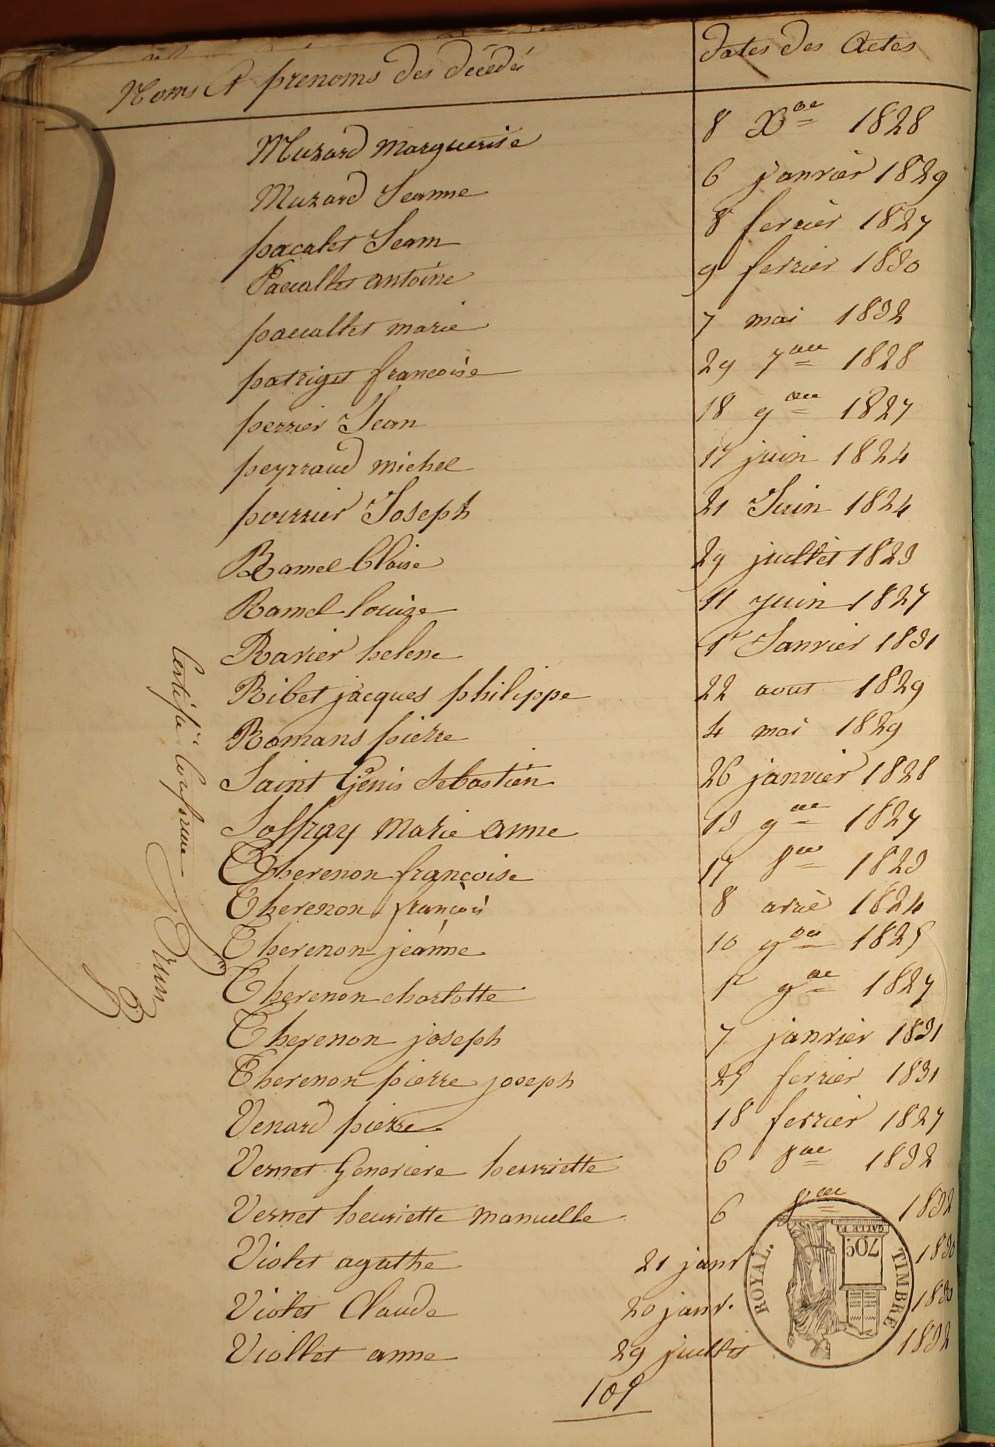 Noms et prenoms des décédés dates des Actes
Muzard marguerite 8 Xbre 1828
Muzard Jeanne 6 janvier 1829
pacalet Jean 8 fevrier 1827
Pacallet antoine 9 fevrier 1830
pacallet marie 7 mai 1832
patriget francoise 29 7bre 1828
perrier Jean 18 9bre 1827
peyrraud michel 17 juin 1824
poirrier Joseph 21 Juin 1824
Ramel Claise 29 juillet 1823
Ramel louize 11 juin 1827
Ravier helene 1er Janvier 1831
Ribet jacques philippe 22 aout 1829
Romans pierre 4 mai 1829
Saint Genis Sebastien 26 janvier 1828
Soffray Marie anne 13 9bre 1827
Therenon françoise 17 8bre 1823
Therenon françois 8 1824
Therenon jeanne 10 9bre 1825
Therenon charlotte 1er 9bre 1827
Therenon joseph 7 janvier 1831
Therenon pierre joseph 25 fevrier 1831
Venard pierre 18 fevrier 1827
Vernet Genevieve henriette 6 8bre 1832
Vernet henriette manuelle 6 8bre 1832
Violet agathe 21 janvr 1830
Violet Claude 20 janv. 1830
Viollet anne 29 juillet 1832
109
Certifié Conforme
TIMBRE ROYAL.
70c